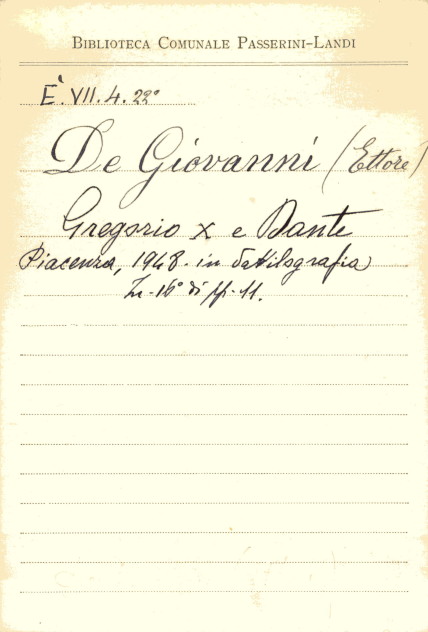 BIBLIOTECA COMUNALE PASSERINI-LANDI
E. VII. 4. 22°
De Giovanni (Ettore)
Gregorio X e Dante
Piacenza, 1948. in dattilografia
In-16° di pp. 11.